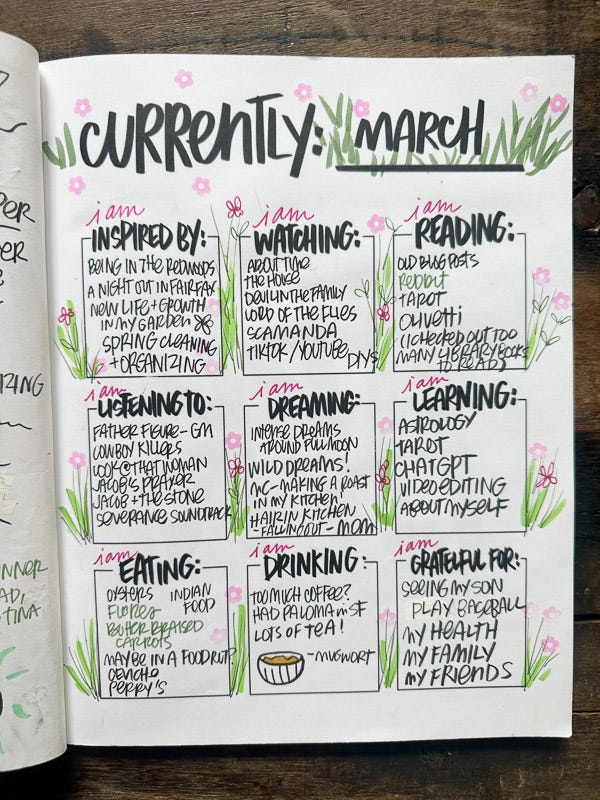 CURRENTLY: MARCH
i am
INSPIRED BY:
BEING IN THE REDWOODS
A NIGHT OUT IN FAIRFAX
NEW LIFE + GROWTH
IN MY GARDEN
SPRING CLEANING
+ ORGANIZING
i am
WATCHING:
ABOUT TIME
THE HOUSE
DEVIL IN THE FAMILY
LORD OF THE FLIES
SCAMANDA
TIKTOK / YOUTUBE
DIYS
i am
READING:
OLD BLOG POSTS
REDDIT
TAROT
OLIVETTI
(I CHECKED OUT TOO
MANY LIBRARY BOOKS
TO READ)
i am
LISTENING TO:
FATHER FIGURE - GM
COWBOY KILLERS
LOOK @ THAT WOMAN
JACOB'S PRAYER
JACOB + THE STONE
SEVERANCE SOUNDTRACK
i am
DREAMING:
INTENSE DREAMS
AROUND FULL MOON
WILD DREAMS!
MC - MAKING A ROAST
IN MY KITCHEN!
HAIR IN KITCHEN
- FALLING OUT - MOM
i am
LEARNING:
ASTROLOGY
TAROT
CHATGPT
VIDEO EDITING
ABOUT MYSELF
i am
EATING:
OYSTERS INDIAN
FOOD
FLORES
BUTTER BRAISED
CARROTS
MAYBE IN A FOOD RUT?
PERRY'S
i am
DRINKING:
TOO MUCH COFFEE?
HAD PALOMA in SF
LOTS OF TEA!
- MUGWORT
i am
GRATEFUL FOR:
SEEING MY SON
PLAY BASEBALL
MY HEALTH
MY FAMILY
MY FRIENDS
DINNER